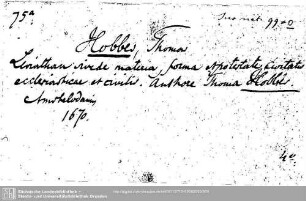 75a
Hobbes, Thomas
Leviathan sive de materia, forma et potestate civitatis
ecclesiasticae et civilis. Authore Thoma Hobbes.
Amstelodami,
1670.
4o.
Sächsische Landesbibliothek -
Staats- und Universitätsbibliothek Dresden